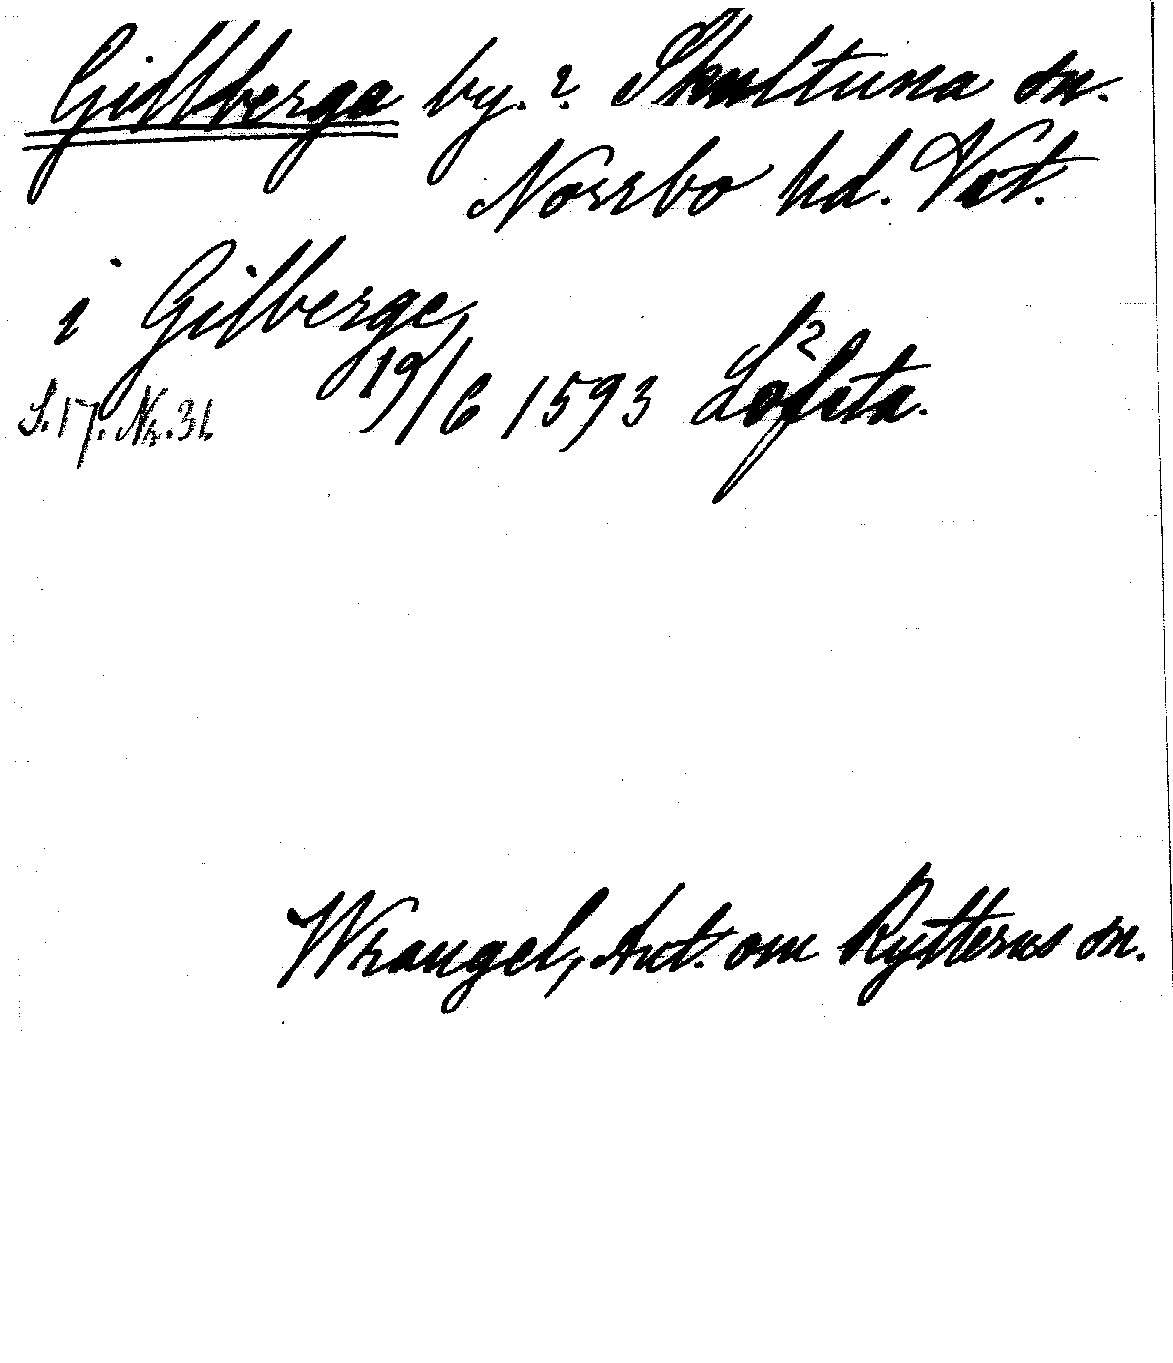 Gillberga by. ? Skultuna sn.
Norrbo hd. Vst.
i Gilberge,
19/6 1593 Löfsta.
S. 17. Nr. 31.
Wrangel, Ant. om Rytterns sn.